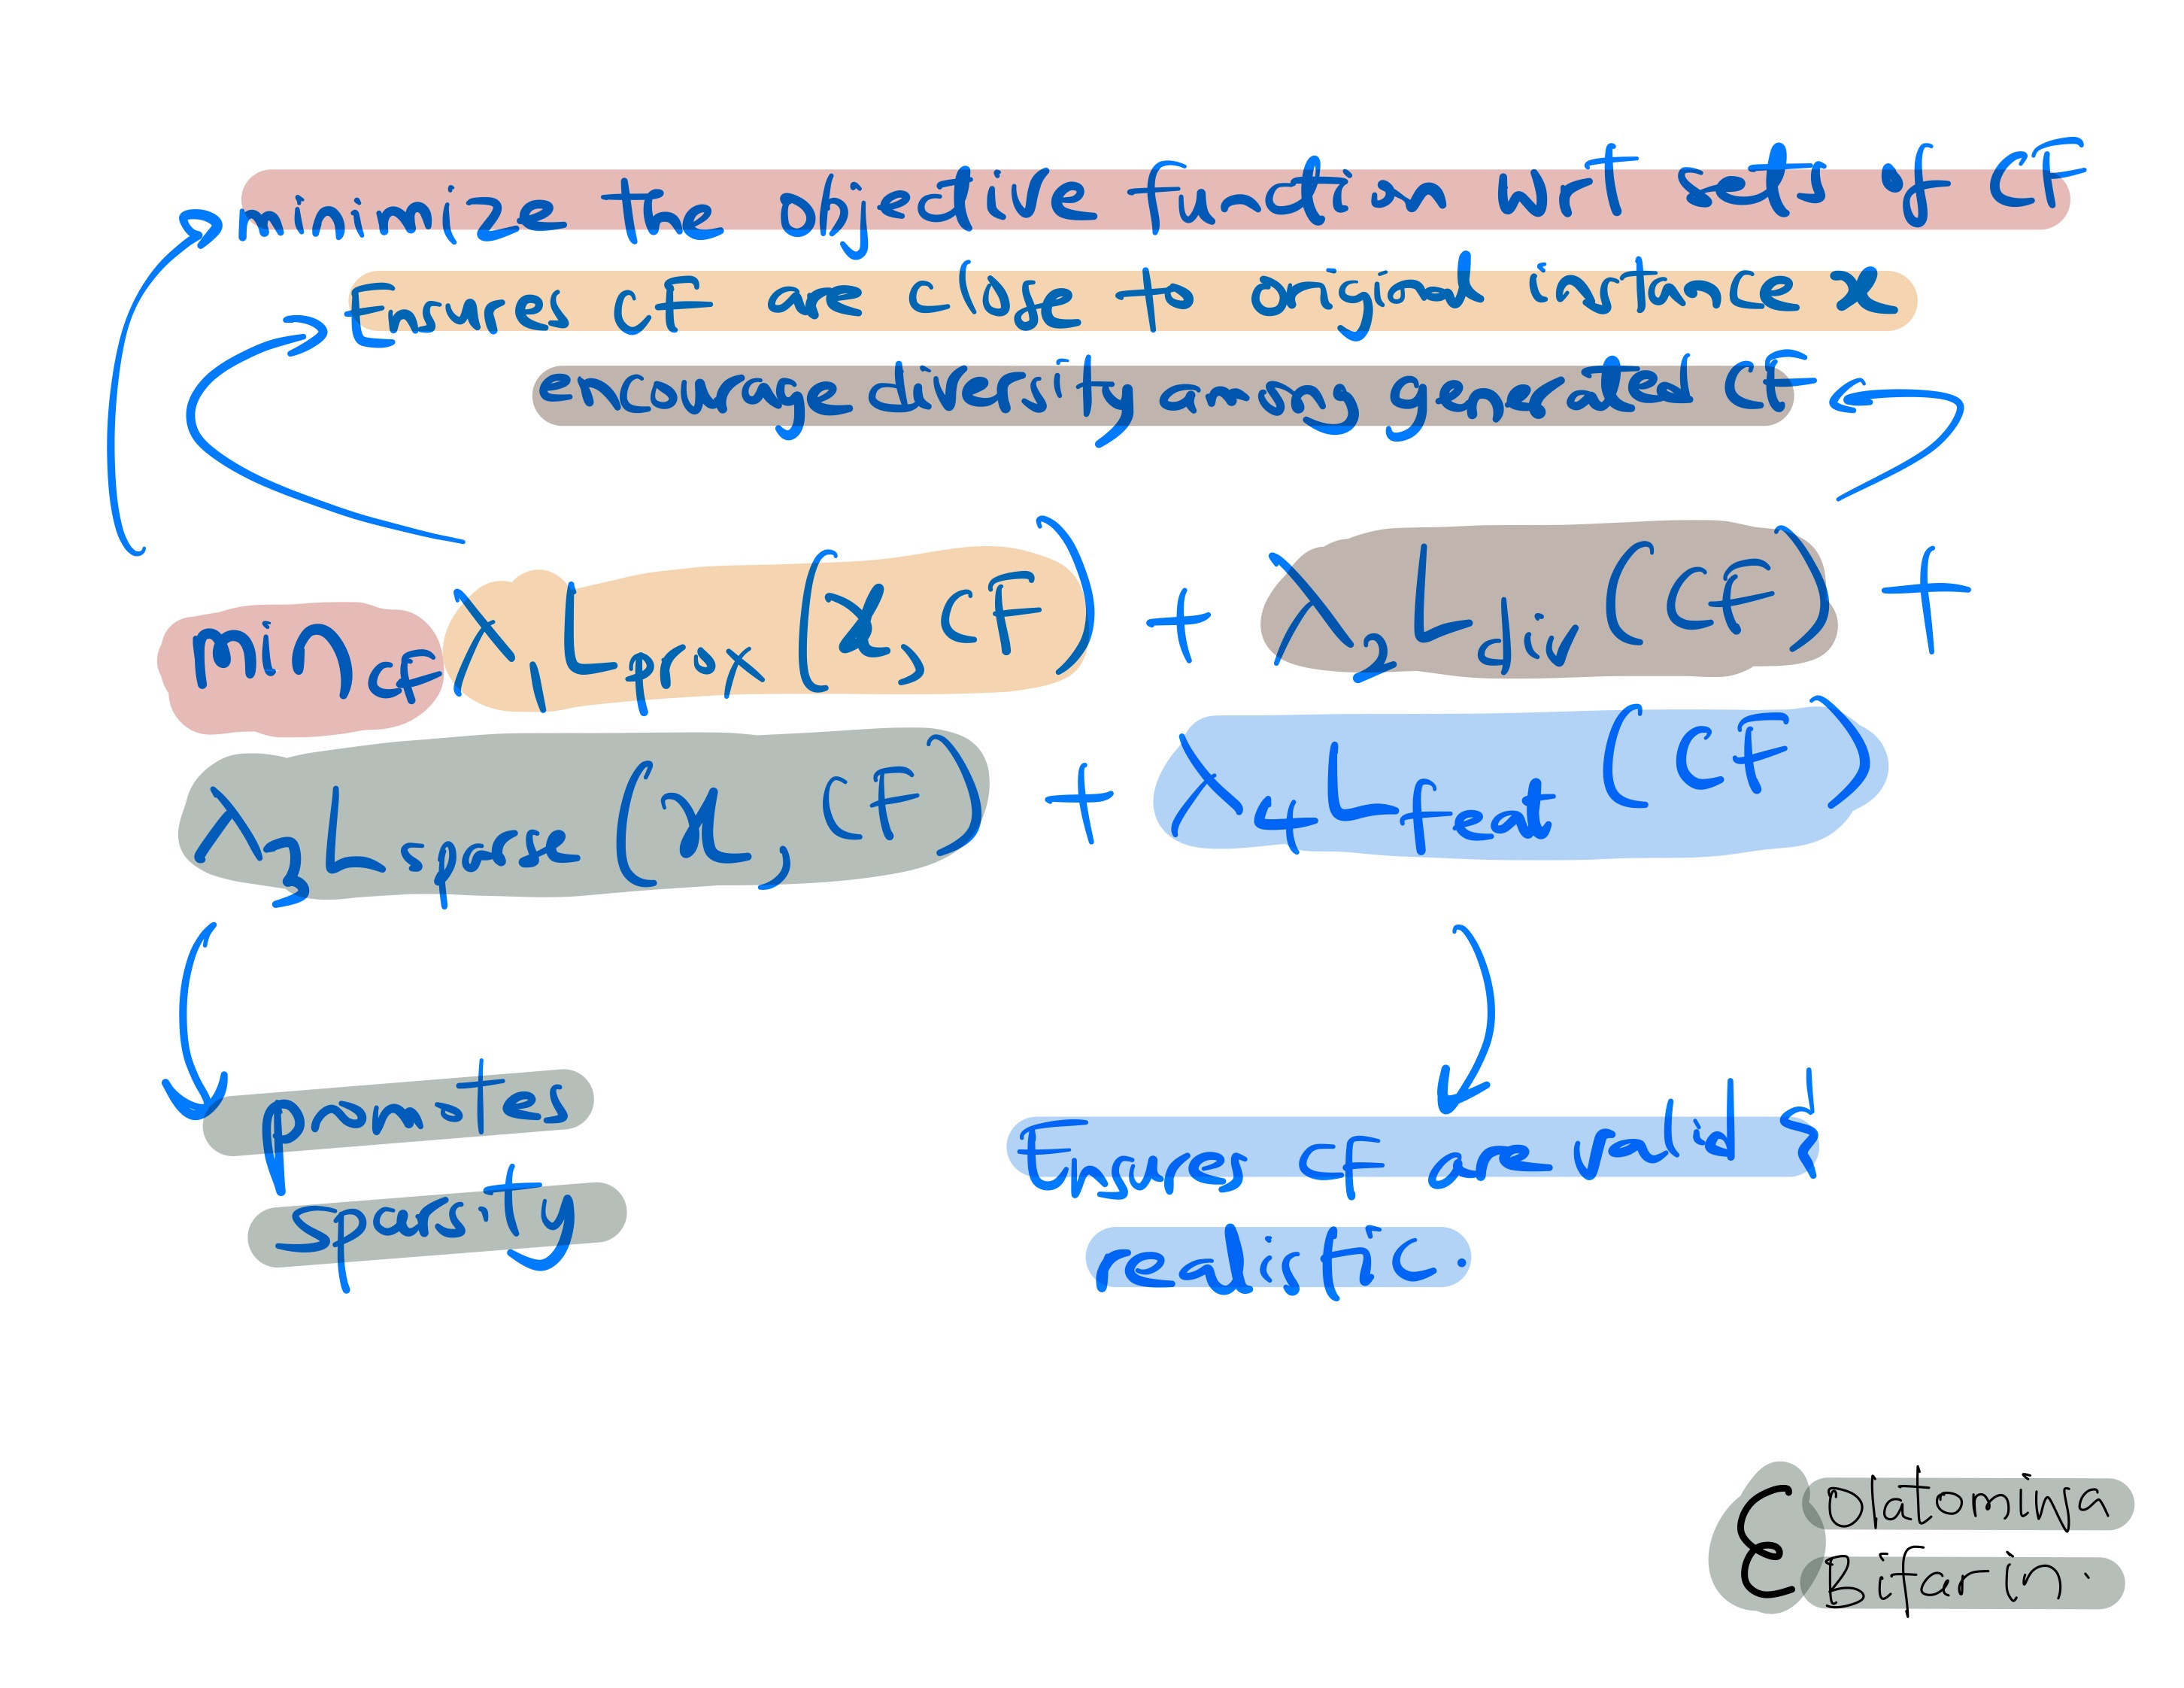 minimize the objective function wrt sets of CF
Ensures CF are close to original instance x
encourage diversity among generated CF
min_CF λ₁L_prox (x, CF) + λ₂L_div (CF) +
λ₃L_sparse (x, CF) + λ₄L_feat (CF)
promotes
sparsity
Ensures CF are valid &
realistic.
Olatomiwa
Bifarin.